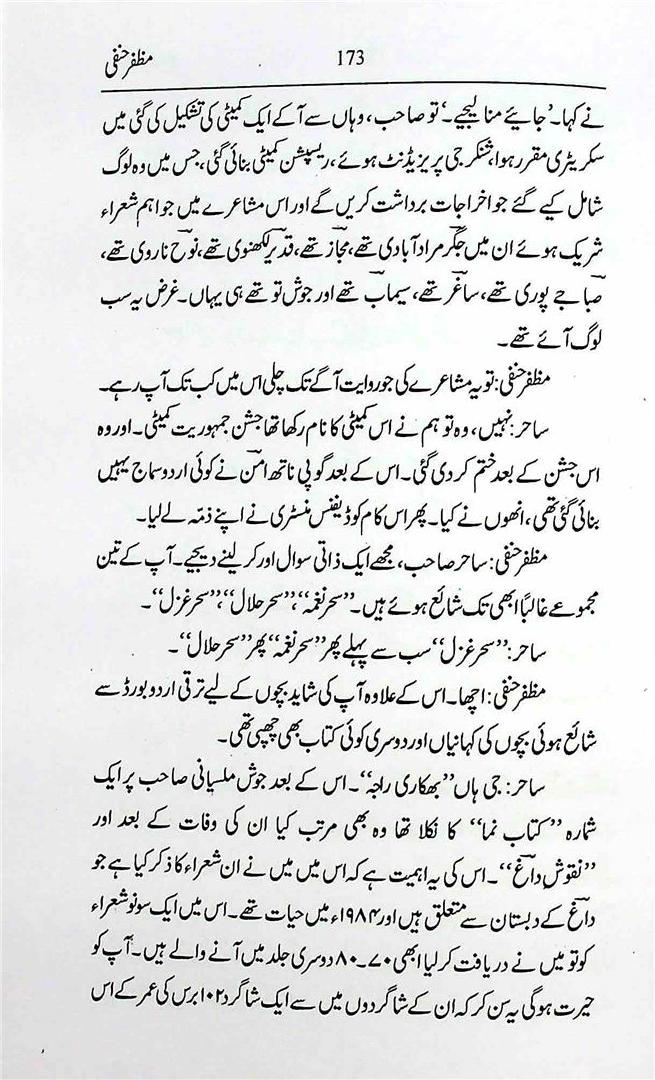 مظفر حنفی
173
نے کہا۔ ’جایئے منا لیجیے۔‘ تو صاحب، وہاں سے آ کے ایک کمیٹی کی تشکیل کی گئی میں
سکریٹری مقرر ہوا، شنکر جی پریزیڈنٹ ہوئے، ریسپشن کمیٹی بنائی گئی، جس میں وہ لوگ
شامل کیے گئے جو اخراجات برداشت کریں گے اور اس مشاعرے میں جو اہم شعراء
شریک ہوئے ان میں جگر مراد آبادی تھے، مجاز تھے، قدیر لکھنوی تھے، نوح ناروی تھے،
صبا جے پوری تھے، ساغر تھے، سیماب تھے اور جوش تو تھے ہی یہاں۔ غرض یہ سب
لوگ آئے تھے۔
مظفر حنفی: تو یہ مشاعرے کی جو روایت آگے تک چلی اس میں کب تک آپ رہے۔
ساحر: نہیں، وہ تو ہم نے اس کمیٹی کا نام رکھا تھا جشن جمہوریت کمیٹی۔ اور وہ
اس جشن کے بعد ختم کر دی گئی۔ اس کے بعد گوپی ناتھ امن نے کوئی اردو سماج یہیں
بنائی گئی تھی، انھوں نے کیا۔ پھر اس کام کو ڈیفنس منسٹری نے اپنے ذمّہ لے لیا۔
مظفر حنفی: ساحر صاحب، مجھے ایک ذاتی سوال اور کر لینے دیجیے۔ آپ کے تین
مجموعے غالباً ابھی تک شائع ہوئے ہیں۔ ”سحر نغمہ“، ”سحر حلال“، ”سحر غزل“۔
ساحر: ”سحر غزل“ سب سے پہلے پھر ”سحر نغمہ“ پھر ”سحر حلال“۔
مظفر حنفی: اچھا۔ اس کے علاوہ آپ کی شاید بچوں کے لیے ترقی اردو بورڈ سے
شائع ہوئی بچوں کی کہانیاں اور دوسری کوئی کتاب بھی چھپی تھی۔
ساحر: جی ہاں ”بھکاری راجہ“۔ اس کے بعد جوش ملسیانی صاحب پر ایک
شمارہ ”کتاب نما“ کا نکلا تھا وہ بھی مرتب کیا ان کی وفات کے بعد اور
”نقوش داغ“۔ اس کی یہ اہمیت ہے کہ اس میں میں نے ان شعراء کا ذکر کیا ہے جو
داغ کے دبستان سے متعلق ہیں اور ۱۹۸۴ء میں حیات تھے۔ اس میں ایک سو نو شعراء
کو تو میں نے دریافت کر لیا ابھی ۷۰۔۸۰ دوسری جلد میں آنے والے ہیں۔ آپ کو
حیرت ہوگی یہ سن کر کہ ان کے شاگردوں میں سے ایک شاگرد ۱۰۲ برس کی عمر کے اس